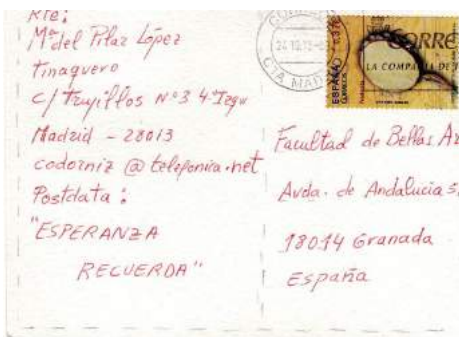 Rte:
Mª del Pilar López
Tinaquero
C/ Trujillos Nº3 4º Izqu
Madrid - 28013
codorniz @ telefonica.net
Postdata :
"ESPERANZA
RECUERDA"
24 10 13
CTA. MADRID
ESPAÑA
CORREOS
0,37€
CORRE
LA COMPAÑIA DE
Facultad de Bellas Ar
Avda. de Andalucia s.
18014 Granada
España